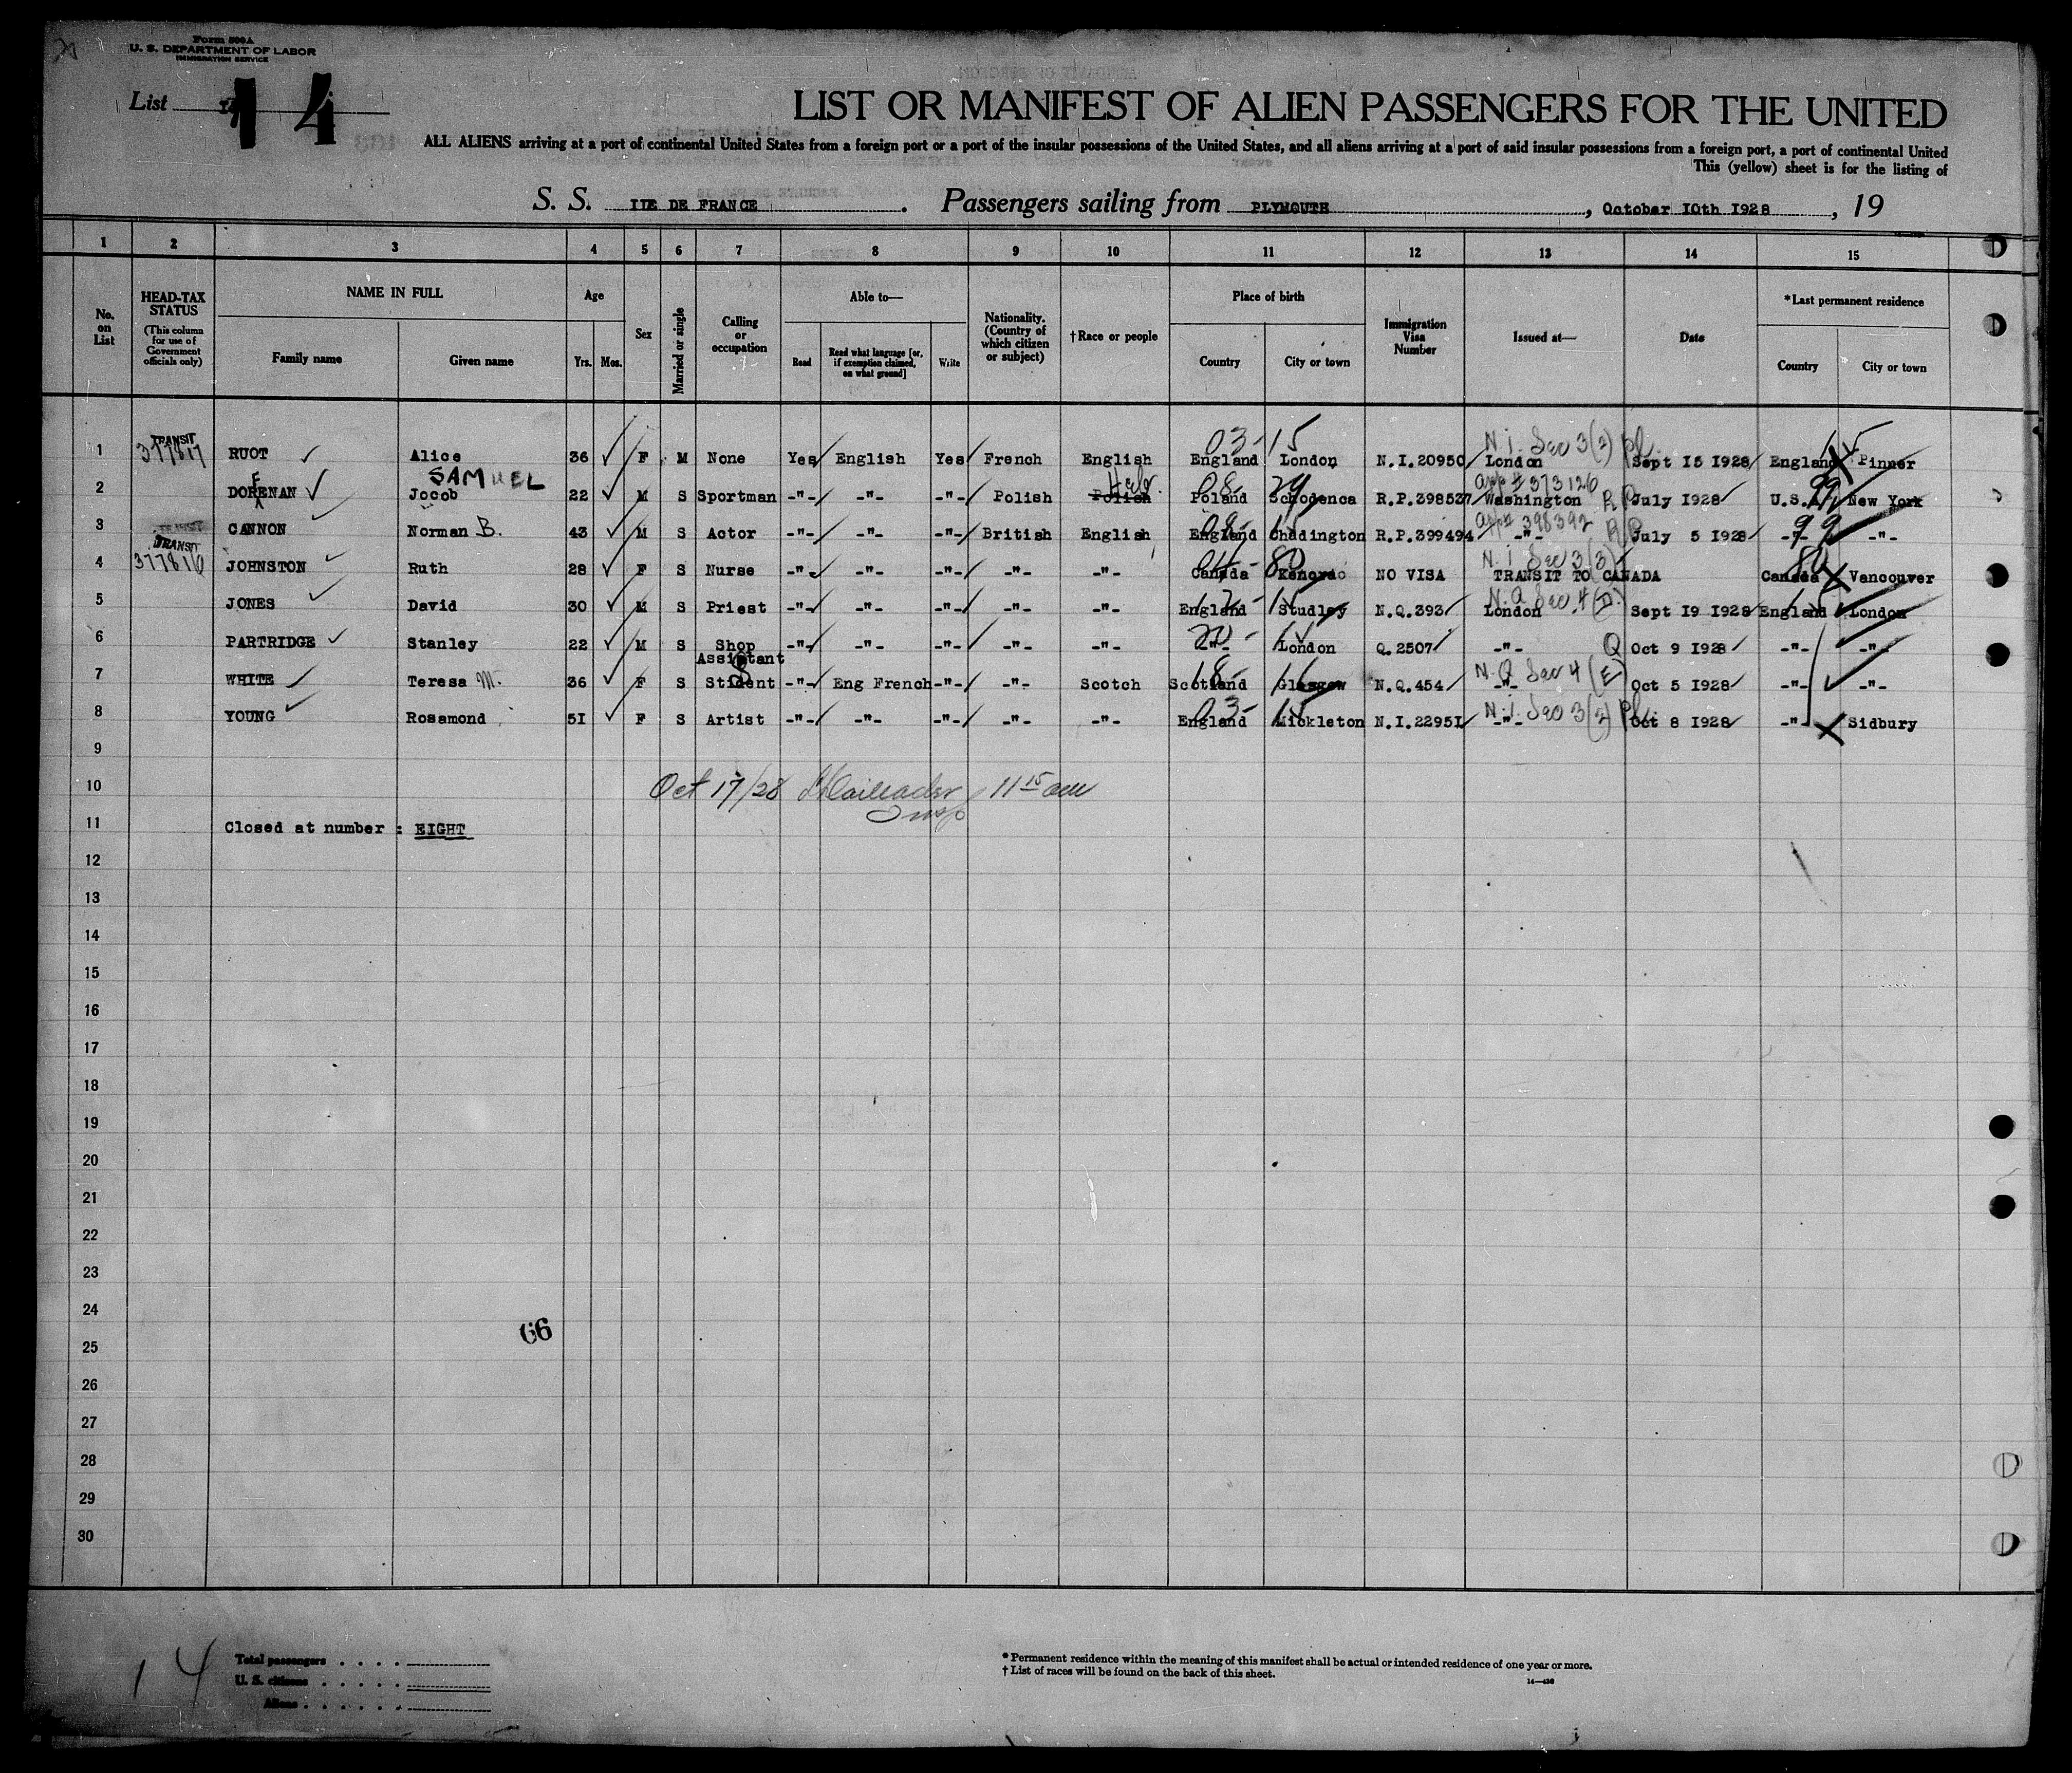 Form 500A
U. S. DEPARTMENT OF LABOR
IMMIGRATION SERVICE
List 14
LIST OR MANIFEST OF ALIEN PASSENGERS FOR THE UNITED
ALL ALIENS arriving at a port of continental United States from a foreign port or a port of the insular possessions of the United States, and all aliens arriving at a port of said insular possessions from a foreign port, a port of continental United
This (yellow) sheet is for the listing of
S. S. ILE DE FRANCE. Passengers sailing from PLYMOUTH, October 10th 1928, 19
1 2 3 4 5 6 7 8 9 10 11 12 13 14 15
No. on List
HEAD-TAX STATUS (This column for use of Government officials only)
NAME IN FULL
Family name Given name
Age
Yrs. Mos.
Sex
Married or single
Calling or occupation
Able to—
Read Read what language [or, if exemption claimed, on what ground] Write
Nationality. (Country of which citizen or subject)
†Race or people
Place of birth
Country City or town
Immigration Visa Number
Issued at—
Date
*Last permanent residence
Country City or town
TRANSIT
N.I. Sec 3(2) Pl.
03-15
1 377817 RUOT Alice 36 F M None Yes English Yes French English England London N.I.20950 London Sept 15 1928 England Pinner
SAMUEL Heb. 08 app # 373126 99
2 DORENAN Jocob 22 M S Sportman -"- -"- -"- Polish Polish Poland Schodenca R.P.398537 Washington RP July 1928 U.S.A. New York
TRANSIT app # 398392 99
3 CANNON Norman B. 43 M S Actor -"- -"- -"- British English England Chadington R.P.399494 -"- RP July 5 1928 -"- -"-
TRANSIT 80 N.I. Sec 3(3)
4 377816 JOHNSTON Ruth 28 F S Nurse -"- -"- -"- -"- -"- Canada NO VISA TRANSIT TO CANADA Canada Vancouver
N.Q. Sec 4 (D)
5 JONES David 30 M S Priest -"- -"- -"- -"- -"- England Studley N.Q.393 London Sept 19 1928 England London
6 PARTRIDGE Stanley 22 M S Shop Assistant -"- -"- -"- -"- -"- -"- London Q.2507 -"- Q Oct 9 1928 -"- -"-
18- N.Q Sec 4 (E)
7 WHITE Teresa M. 36 F S Student -"- Eng French -"- -"- Scotch Scotland Glasgow N.Q.454 -"- Oct 5 1928 -"- -"-
03- 15 N.I. Sec 3(2) Pl.
8 YOUNG Rosamond 51 F S Artist -"- -"- -"- -"- -"- England Mickleton N.I.22951 -"- Oct 8 1928 -"- Sidbury
9
10 Oct 17/28 Insp 11 15 am
11 Closed at number : EIGHT
12
13
14
15
16
17
18
19
20
21
22
23
24
66
25
26
27
28
29
30
14
Total passengers
U. S. citizens
Aliens
* Permanent residence within the meaning of this manifest shall be actual or intended residence of one year or more.
† List of races will be found on the back of this sheet.
14—430